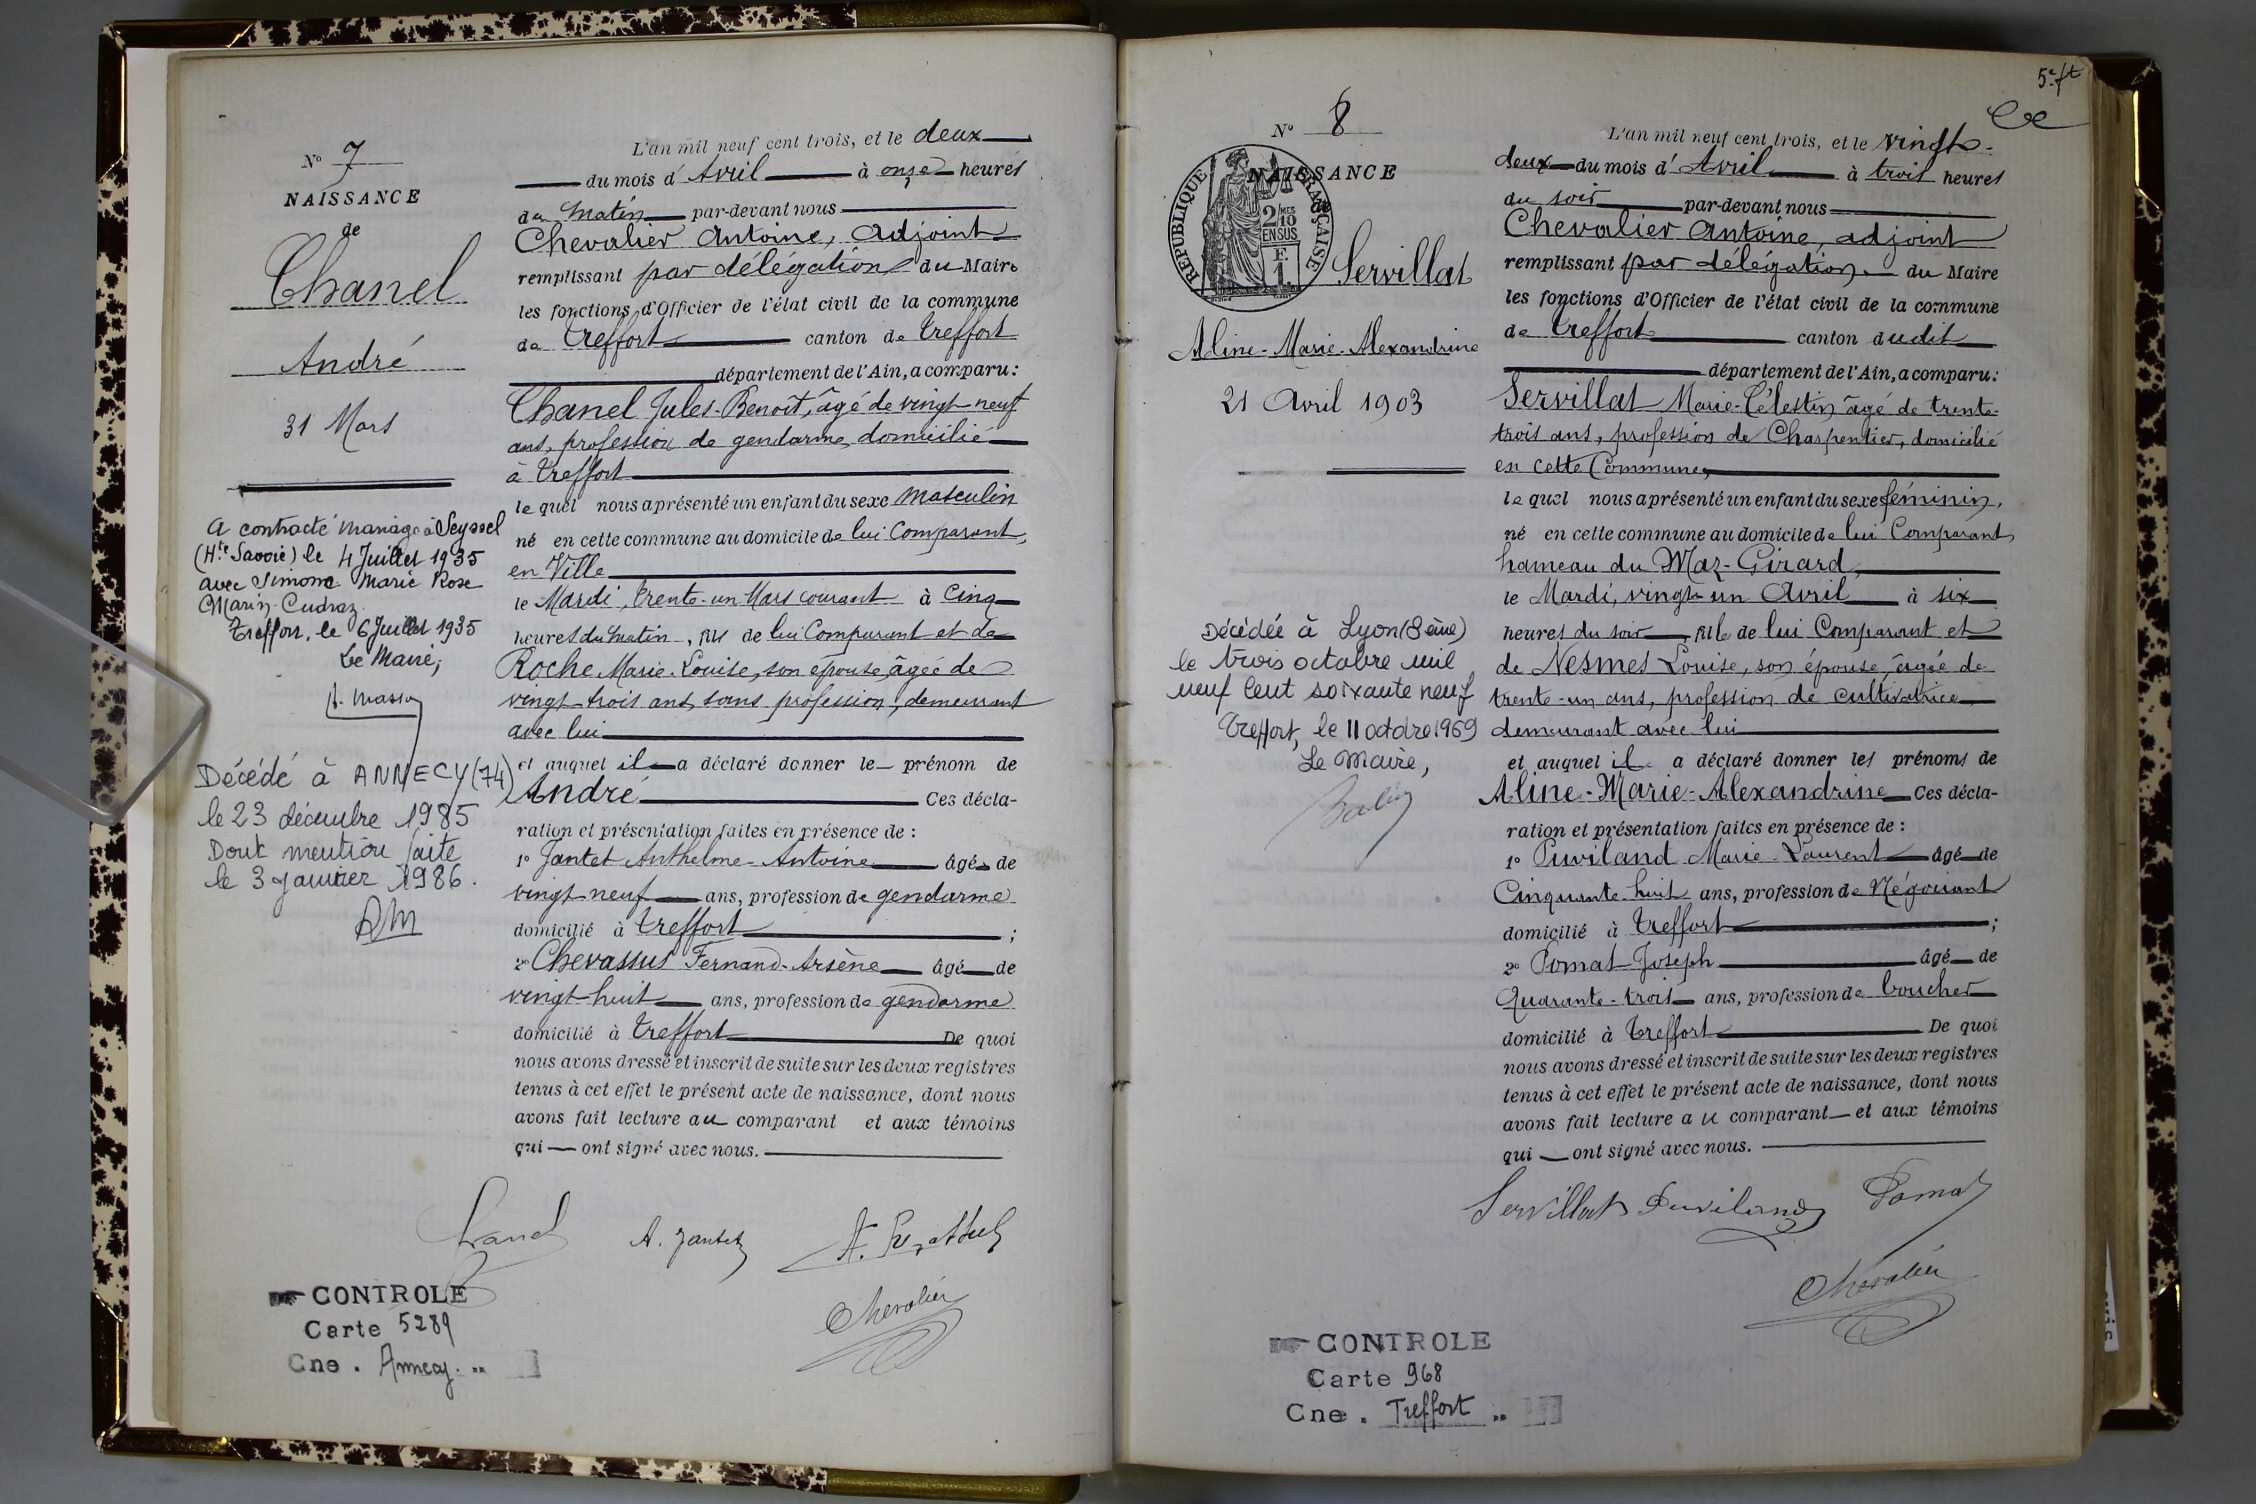 N° 7
NAISSANCE
de
Chanel
André
31 Mars
A contracté mariage à Seyssel
(Hte Savoie) le 4 Juillet 1935
avec Simone Marie Rose
Marin-Cudraz.
Treffort, le 6 Juillet 1935
Le Maire,
Décédé à ANNECY (74)
le 23 décembre 1985
Dont mention faite
le 3 janvier 1986.
CONTROLE
Carte 5289
Cne. Annecy.
L'an mil neuf cent trois, et le deux
du mois d'Avril à onze heures
du matin par-devant nous
Chevalier Antoine, Adjoint
remplissant par délégation du Maire
les fonctions d'Officier de l'état civil de la commune
de Treffort canton de Treffort
département de l'Ain, a comparu:
Chanel Jules-Benoît, âgé de vingt neuf
ans, profession de gendarme, domicilié
à Treffort
le quel nous a présenté un enfant du sexe masculin
né en cette commune au domicile de lui Comparant,
en Ville
le Mardi, trente-un Mars courant à Cinq
heures du matin, fils de lui Comparant et de
Roche Marie-Louise, son épouse, âgée de
vingt-trois ans, sans profession, demeurant
avec lui
et auquel il a déclaré donner le prénom de
André Ces décla-
ration et présentation faites en présence de :
1° Jantet Anthelme-Antoine âgé de
vingt-neuf ans, profession de gendarme
domicilié à Treffort ;
2° Chevassus Fernand-Arsène âgé de
vingt-huit ans, profession de gendarme
domicilié à Treffort De quoi
nous avons dressé et inscrit de suite sur les deux registres
tenus à cet effet le présent acte de naissance, dont nous
avons fait lecture au comparant et aux témoins
qui ont signé avec nous.
Chanel A. Jantet
Chevalier
5e ft
N° 8
NAISSANCE
de
REPUBLIQUE FRANÇAISE
2/10 MES
EN SUS
F.
1.
Servillat
Aline-Marie-Alexandrine
21 Avril 1903
Décédée à Lyon (8ème)
le trois octobre mil
neuf cent soixante neuf
Treffort, le 11 octobre 1969
Le Maire,
CONTROLE
Carte 968
Cne. Treffort
L'an mil neuf cent trois, et le vingt-
deux du mois d'Avril à trois heures
du soir par-devant nous
Chevalier Antoine, adjoint
remplissant par délégation du Maire
les fonctions d'Officier de l'état civil de la commune
de Treffort canton dudit
département de l'Ain, a comparu:
Servillat Marie-Célestin âgé de trente-
trois ans, profession de Charpentier, domicilié
en cette Commune,
le quel nous a présenté un enfant du sexe féminin,
né en cette commune au domicile de lui Comparant,
hameau du Maz-Girard,
le Mardi, vingt-un Avril à six
heures du soir, fille de lui Comparant et
de Nesmes Louise, son épouse, âgée de
trente-un ans, profession de cultivatrice
demeurant avec lui
et auquel il a déclaré donner les prénoms de
Aline-Marie-Alexandrine Ces décla-
ration et présentation faites en présence de :
1° Puviland Marie-Laurent âgé de
Cinquante-huit ans, profession de Négociant
domicilié à Treffort ;
2° Pomat Joseph âgé de
Quarante-trois ans, profession de boucher
domicilié à Treffort De quoi
nous avons dressé et inscrit de suite sur les deux registres
tenus à cet effet le présent acte de naissance, dont nous
avons fait lecture au comparant et aux témoins
qui ont signé avec nous.
Servillat Puviland Pomat
Chevalier